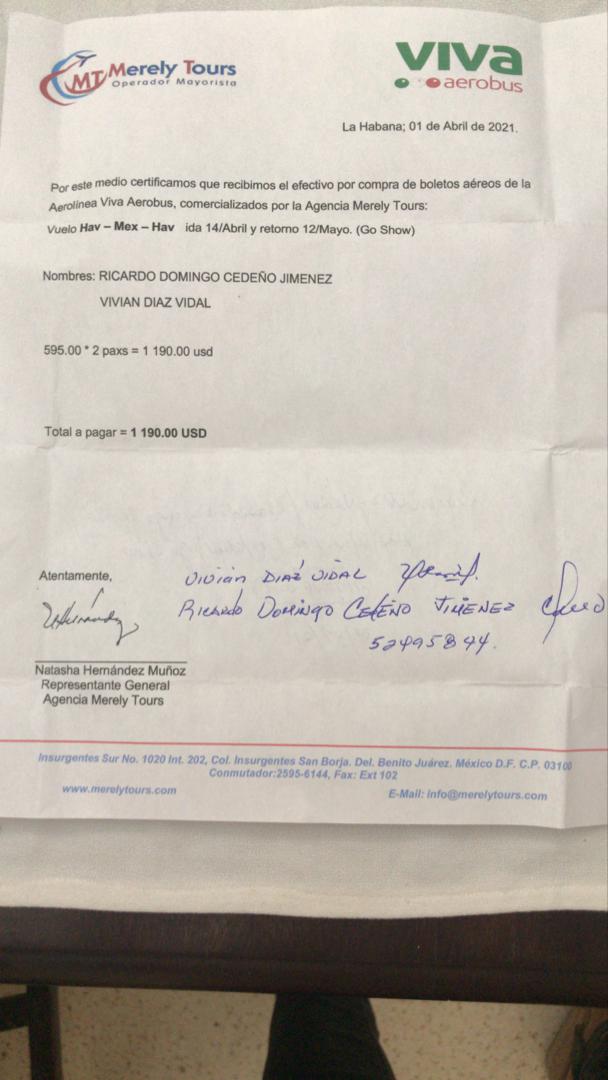 MT Merely Tours
Operador Mayorista
VIVA
aerobus
La Habana; 01 de Abril de 2021.
Por este medio certificamos que recibimos el efectivo por compra de boletos aéreos de la
Aerolínea Viva Aerobus, comercializados por la Agencia Merely Tours:
Vuelo Hav – Mex – Hav ida 14/Abril y retorno 12/Mayo. (Go Show)
Nombres: RICARDO DOMINGO CEDEÑO JIMENEZ
VIVIAN DIAZ VIDAL
595.00 * 2 paxs = 1 190.00 usd
Total a pagar = 1 190.00 USD
Atentamente,
Vivian DIAZ VIDAL
Ricardo Domingo CEDEÑO JIMENEZ
52495844.
Natasha Hernández Muñoz
Representante General
Agencia Merely Tours
Insurgentes Sur No. 1020 Int. 202, Col. Insurgentes San Borja. Del. Benito Juárez. México D.F. C.P. 03100
Conmutador:2595-6144, Fax: Ext 102
www.merelytours.com
E-Mail: info@merelytours.com